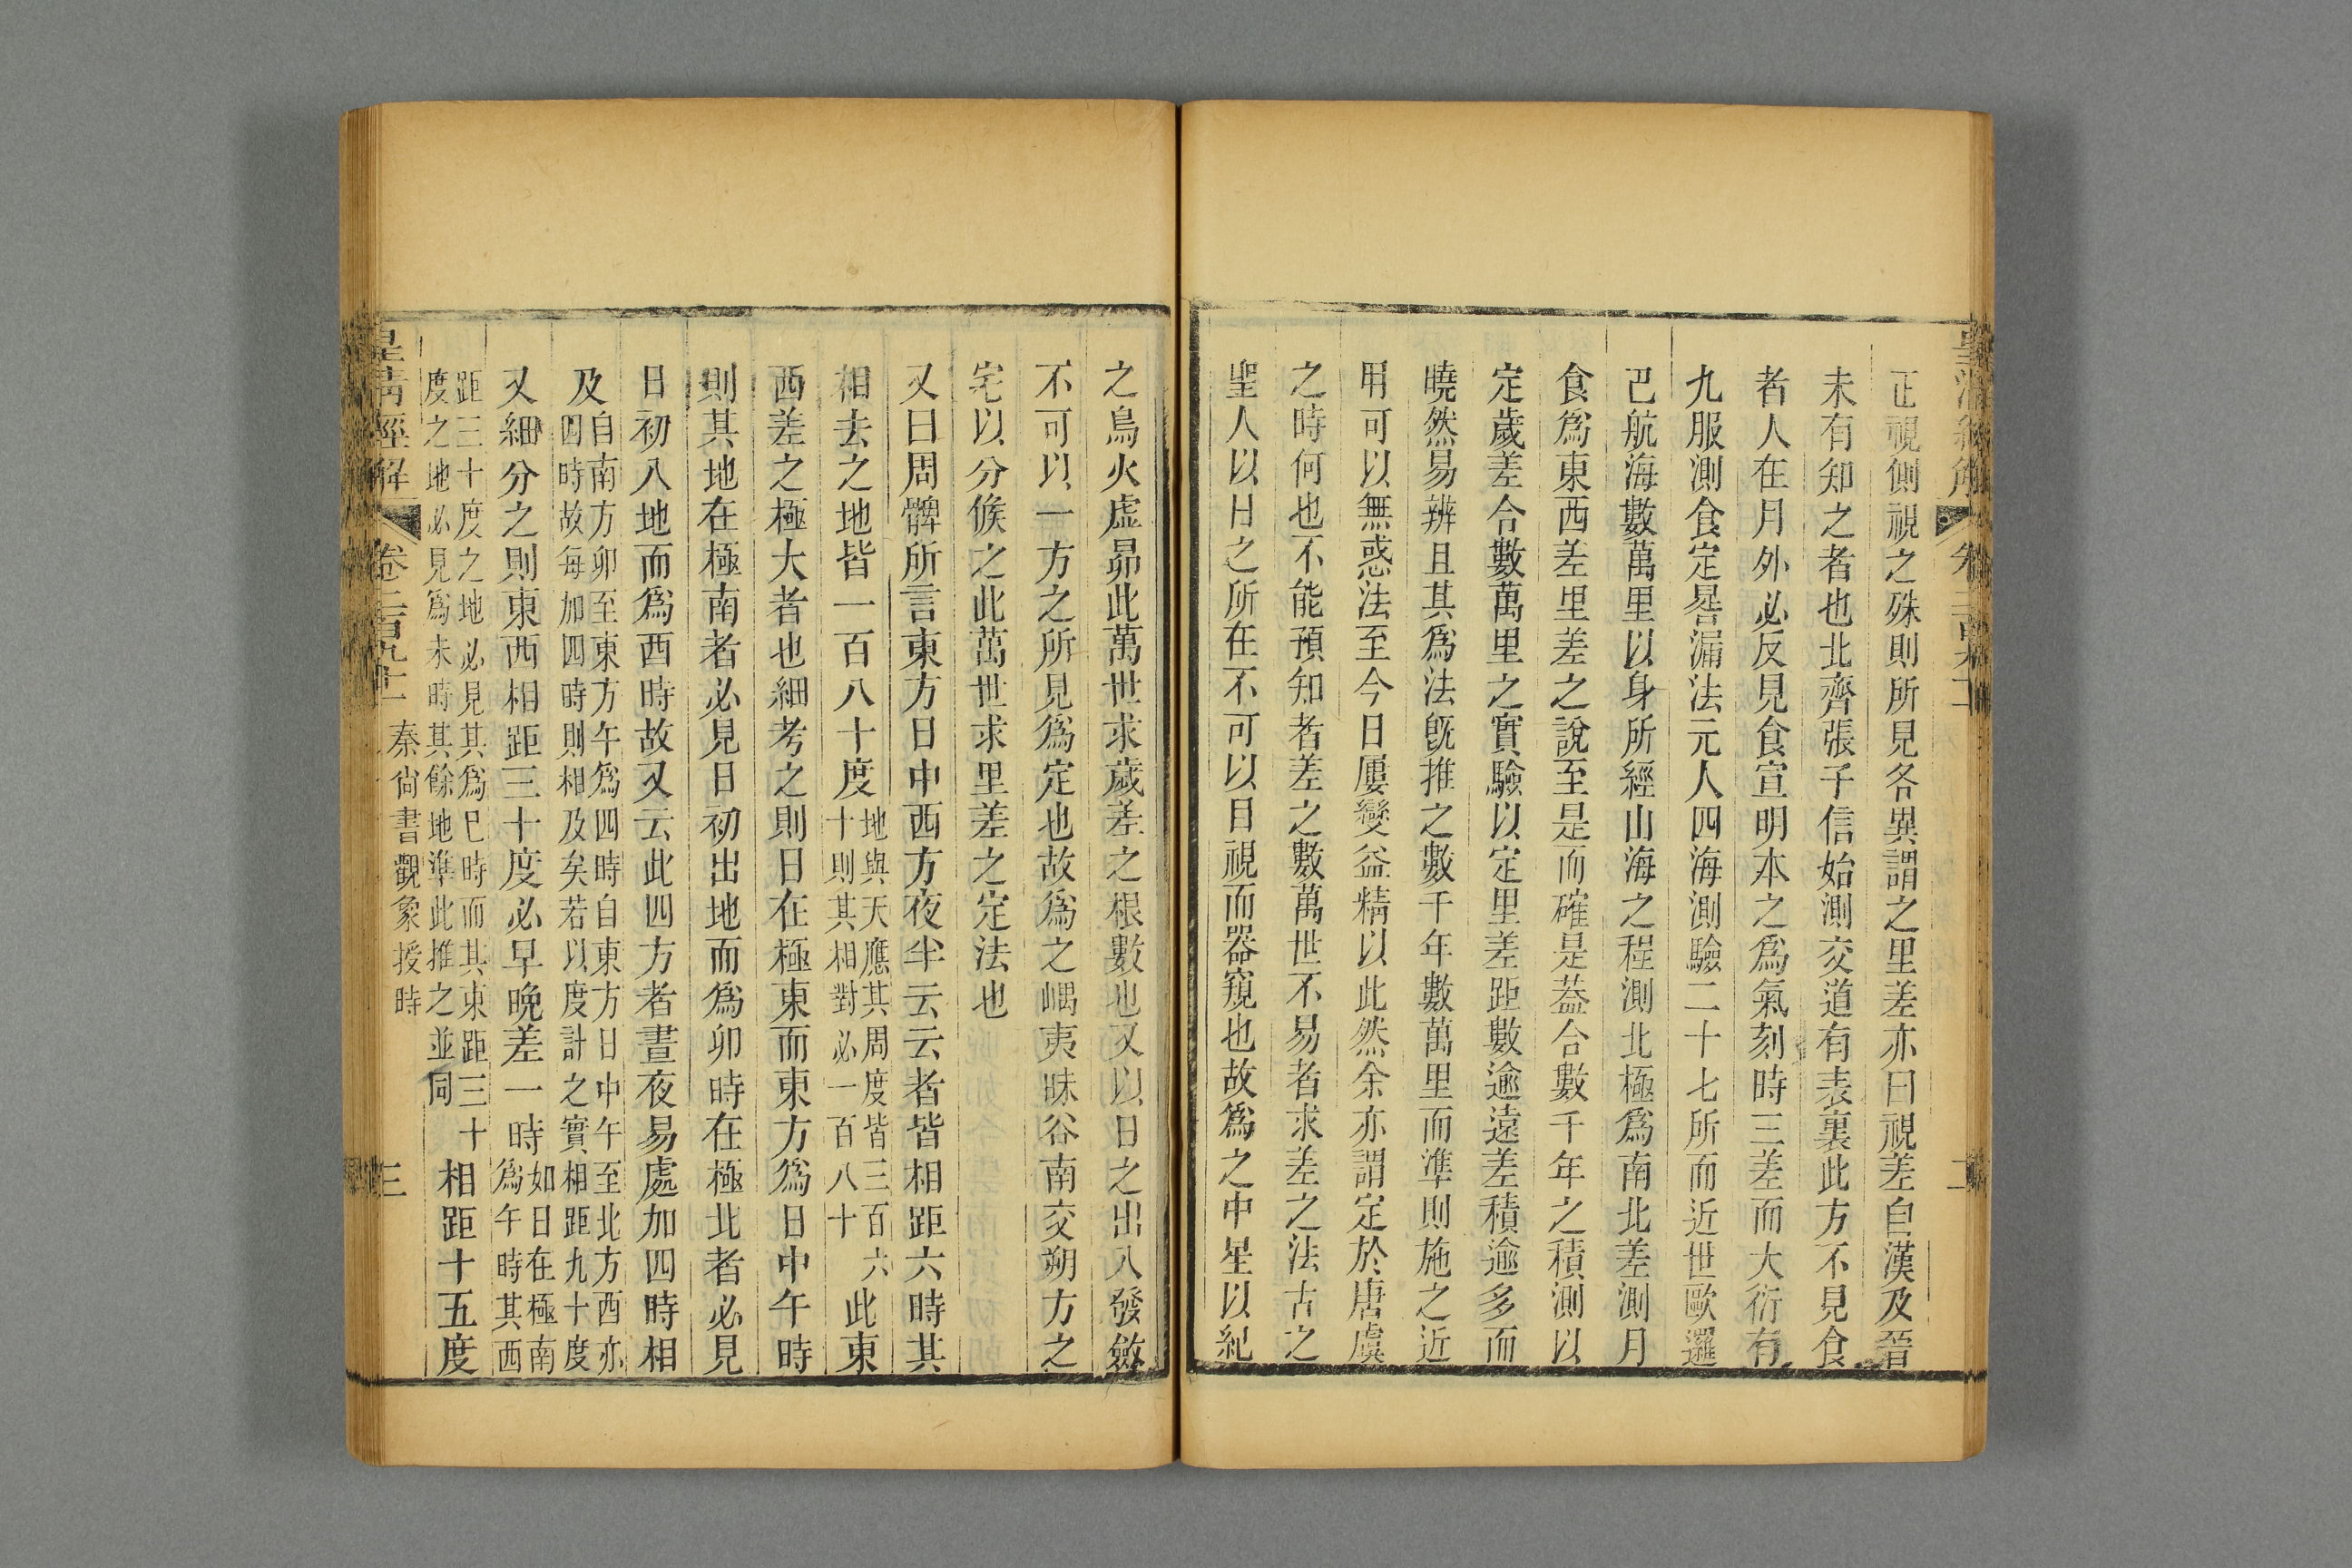 正視側視之殊則所見各異謂之里差亦曰視差自漢及晉
未有知之者也北齊張子信始測交道有表裏此方不見食
者人在月外必反見食宣明本之爲氣刻時三差而大衍有
九服測食定晷漏法元人四海測驗二十七所而近世歐邏
巴航海數萬里以身所經山海之程測北極爲南北差測月
食爲東西差里差之說至是而確是葢合數千年之積測以
定歲差合數萬里之實驗以定里差距數逾遠差積逾多而
曉然易辨且其爲法旣推之數千年數萬里而準則施之近
用可以無惑法至今日屢變益精以此然余亦謂定於唐虞
之時何也不能預知者差之數萬世不易者求差之法古之
聖人以日之所在不可以目視而器窺也故爲之中星以紀
之鳥火虛昴此萬世求歲差之根數也又以日之出入發斂
不可以一方之所見爲定也故爲之嵎夷昧谷南交朔方之
宅以分候之此萬世求里差之定法也
又曰周髀所言東方日中西方夜半云云者皆相距六時其
相去之地皆一百八十度地與天應其周度皆三百六十則其相對必一百八十此東
西差之極大者也細考之則日在極東而東方爲日中午時
則其地在極南者必見日初出地而爲卯時在極北者必見
日初入地而爲酉時故又云此四方者晝夜易處加四時相
及自南方卯至東方午爲四時自東方日中午至北方酉亦四時故每加四時則相及矣若以度計之實相距九十度
又細分之則東西相距三十度必早晚差一時如日在極南爲午時其西
距三十度之地必見其爲巳時而其東距三十度之地必見爲未時其餘地準此推之並同相距十五度
皇清經解 卷二百九十二 秦尙書觀象授時 三